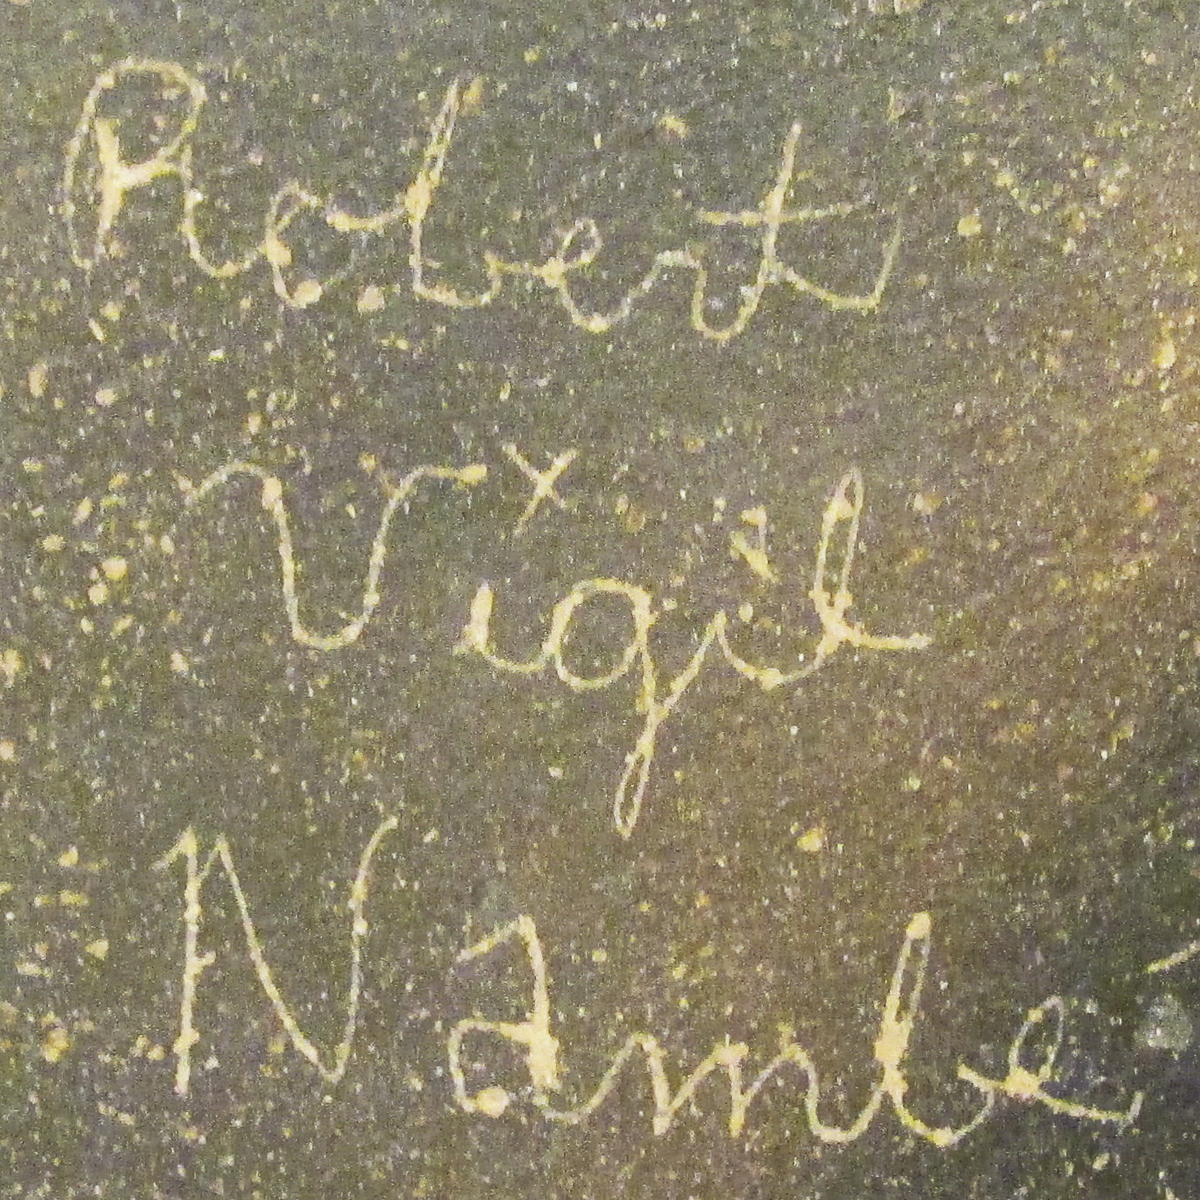 Robert
Vigil
Namle